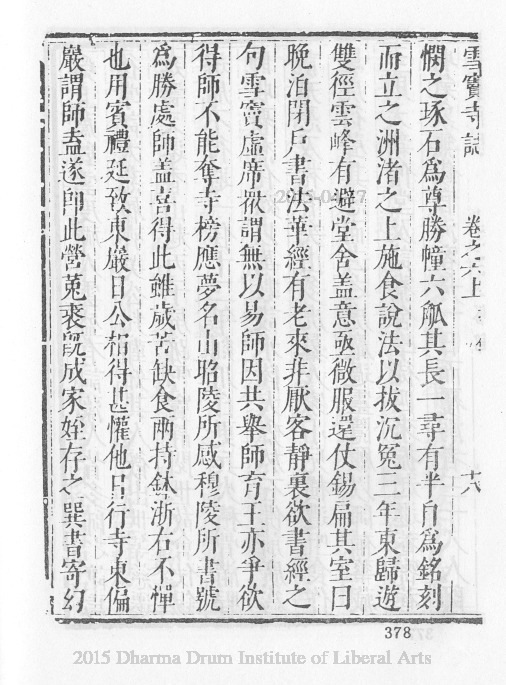 雪竇寺誌 卷之六上 十八
憫之琢石為尊勝幢六觚其長一尋有半自為銘刻
而立之洲渚之上施食說法以拔沉冤三年東歸遊
雙徑雲峰有避堂舍盖意亟微服還仗錫扁其室曰
晚泊閉戶書法華經有老來非厭客靜裏欲書經之
句雪竇虛席眾謂無以易師因共舉師育王亦爭欲
得師不能奪寺榜應夢名山昭陵所感穆陵所書號
為勝處師盖喜得此雖歲苦缺食兩持鉢浙右不憚
也用賓禮延致東巖日公相得甚懽他日行寺東偏
巖謂師盍遂卽此營菟裘旣成家姪存之巽書寄幻
378
2015 Dharma Drum Institute of Liberal Arts